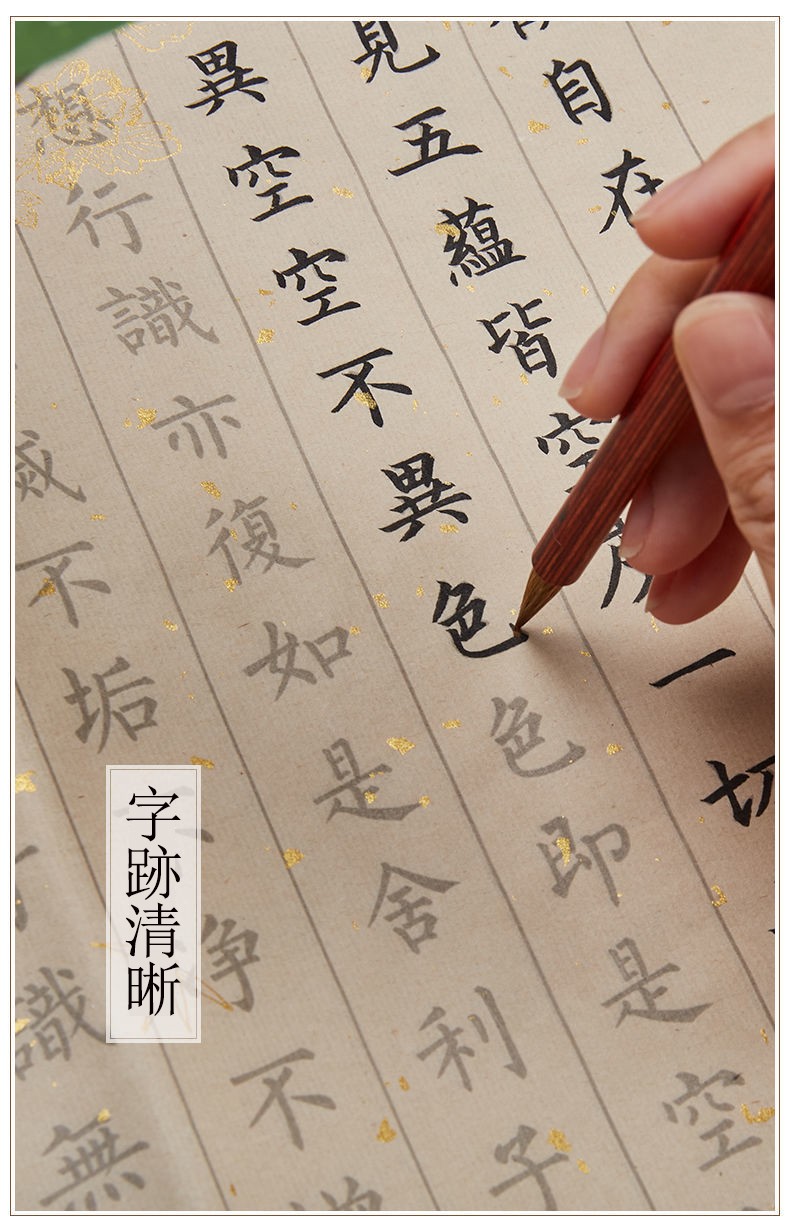 自在
見五蘊皆空度一切
異空空不異色色即是空
想行識亦復如是舍利子
滅不垢不淨不增
識無
字跡清晰